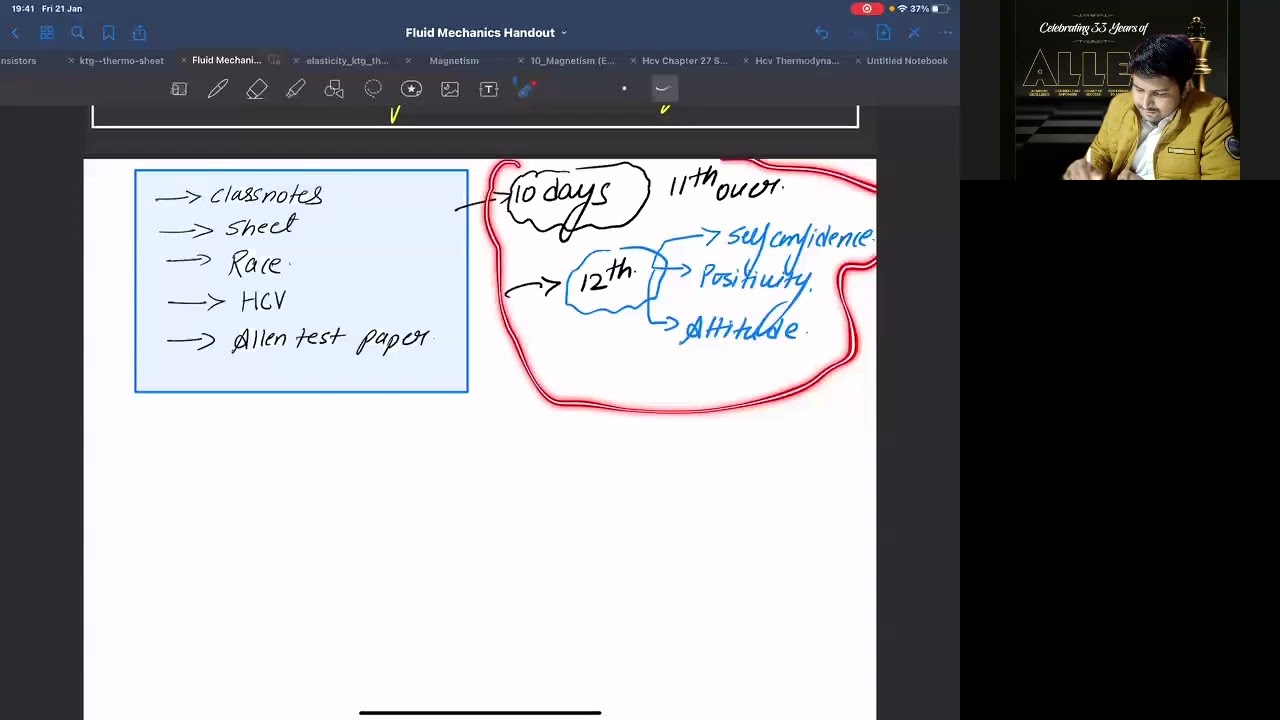 19:41 Fri 21 Jan
37%
Fluid Mechanics Handout
nsistors
ktg--thermo-sheet
Fluid Mechani...
elasticity_ktg_th...
Magnetism
10_Magnetism (E...
Hcv Chapter 27 S...
Hcv Thermodyna...
Untitled Notebook
→ classnotes
→ sheet
→ Race.
→ HCV
→ Allen test paper.
→ 10 days 11th over.
→ 12th.
→ self confidence.
→ Positivity.
→ Attitude.
Celebrating 33 Years of
ALLE